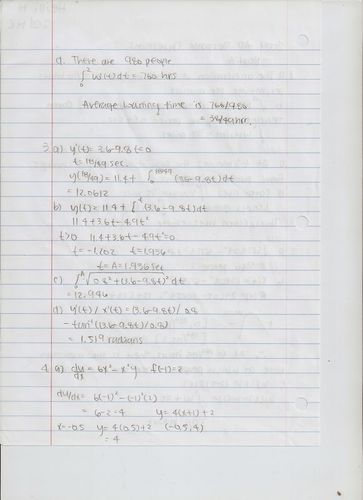 d. There are 980 people
∫₀² w'(t) dt = 760 hrs
Average waiting time is 760/980
= 38/49 hrs.
3. a) y'(t) = 3.6 - 9.8t = 0
t = 18/49 sec.
y(18/49) = 11.4 + ∫₀^18/49 (3.6 - 9.8t) dt
= 12.0612
b) y(t) = 11.4 + ∫₀ᵗ (3.6 - 9.8t) dt
11.4 + 3.6t - 4.9t²
t>0 11.4 + 3.6t - 4.9t² = 0
t = -1.202 t = 1.936
t = A = 1.936 sec
c) ∫₀ᴬ √0.8² + (3.6 - 9.8t)² dt
= 12.946
d) y'(t) / x'(t) = (3.6 - 9.8t) / 0.8
- tan⁻¹ (3.6 - 9.8t) / 0.8)
= 1.519 radians
4. a) dy/dx = 6x² - x²y f(-1) = 2
dy/dx = 6(-1)² - (-1)²(2)
6 - 2 = 4 y = 4(x+1) + 2
x = -0.5 y = 4(0.5) + 2 (-0.5, 4)
= 4